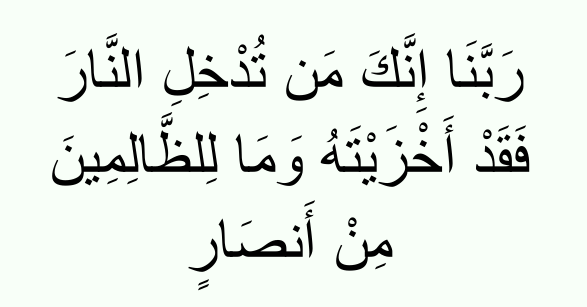 رَبَّنَا إِنَّكَ مَن تُدْخِلِ النَّارَ
فَقَدْ أَخْزَيْتَهُ وَمَا لِلظَّالِمِينَ
مِنْ أَنصَارٍ